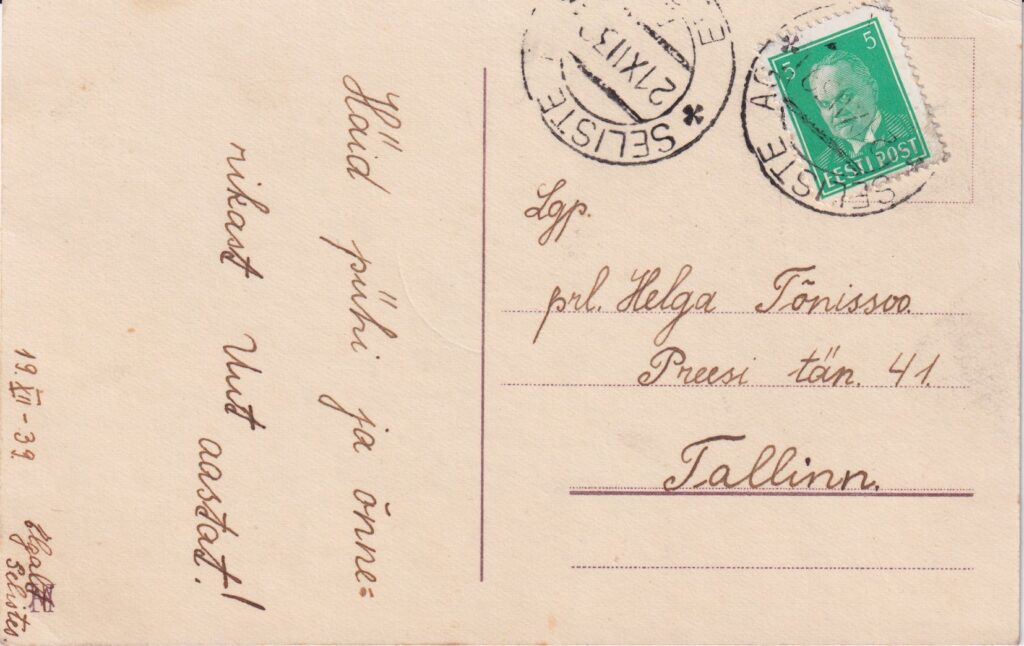 Häid pühi ja õnne=
rikast Uut aastat!
19.XII-39.
Selistes.
SELISTE
21 XII 39
SELISTE AG
5
5
EESTI POST
Lgp.
prl. Helga Tõnissoo.
Preesi tän. 41.
Tallinn.